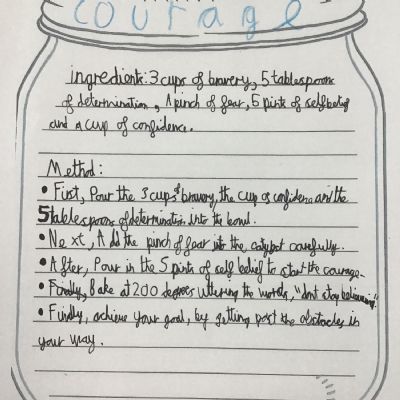 courage
ingredients: 3 cups of bravery, 5 tablespoons
of determination, A pinch of fear, 5 pints of self belief
and a cup of confidence.
Method:
• First, Pour the 3 cups of bravery, the cup of confidence and the
5 tablespoons of determination into the bowl.
• Next, Add the pinch of fear into the carefully.
• After, Pour in the 5 pints of self belief to start the courage.
• Finally, Bake at 200 degrees uttering the words, "dont stop believing".
• Finally, achieve your goal, by getting past the obstacles in
your way.